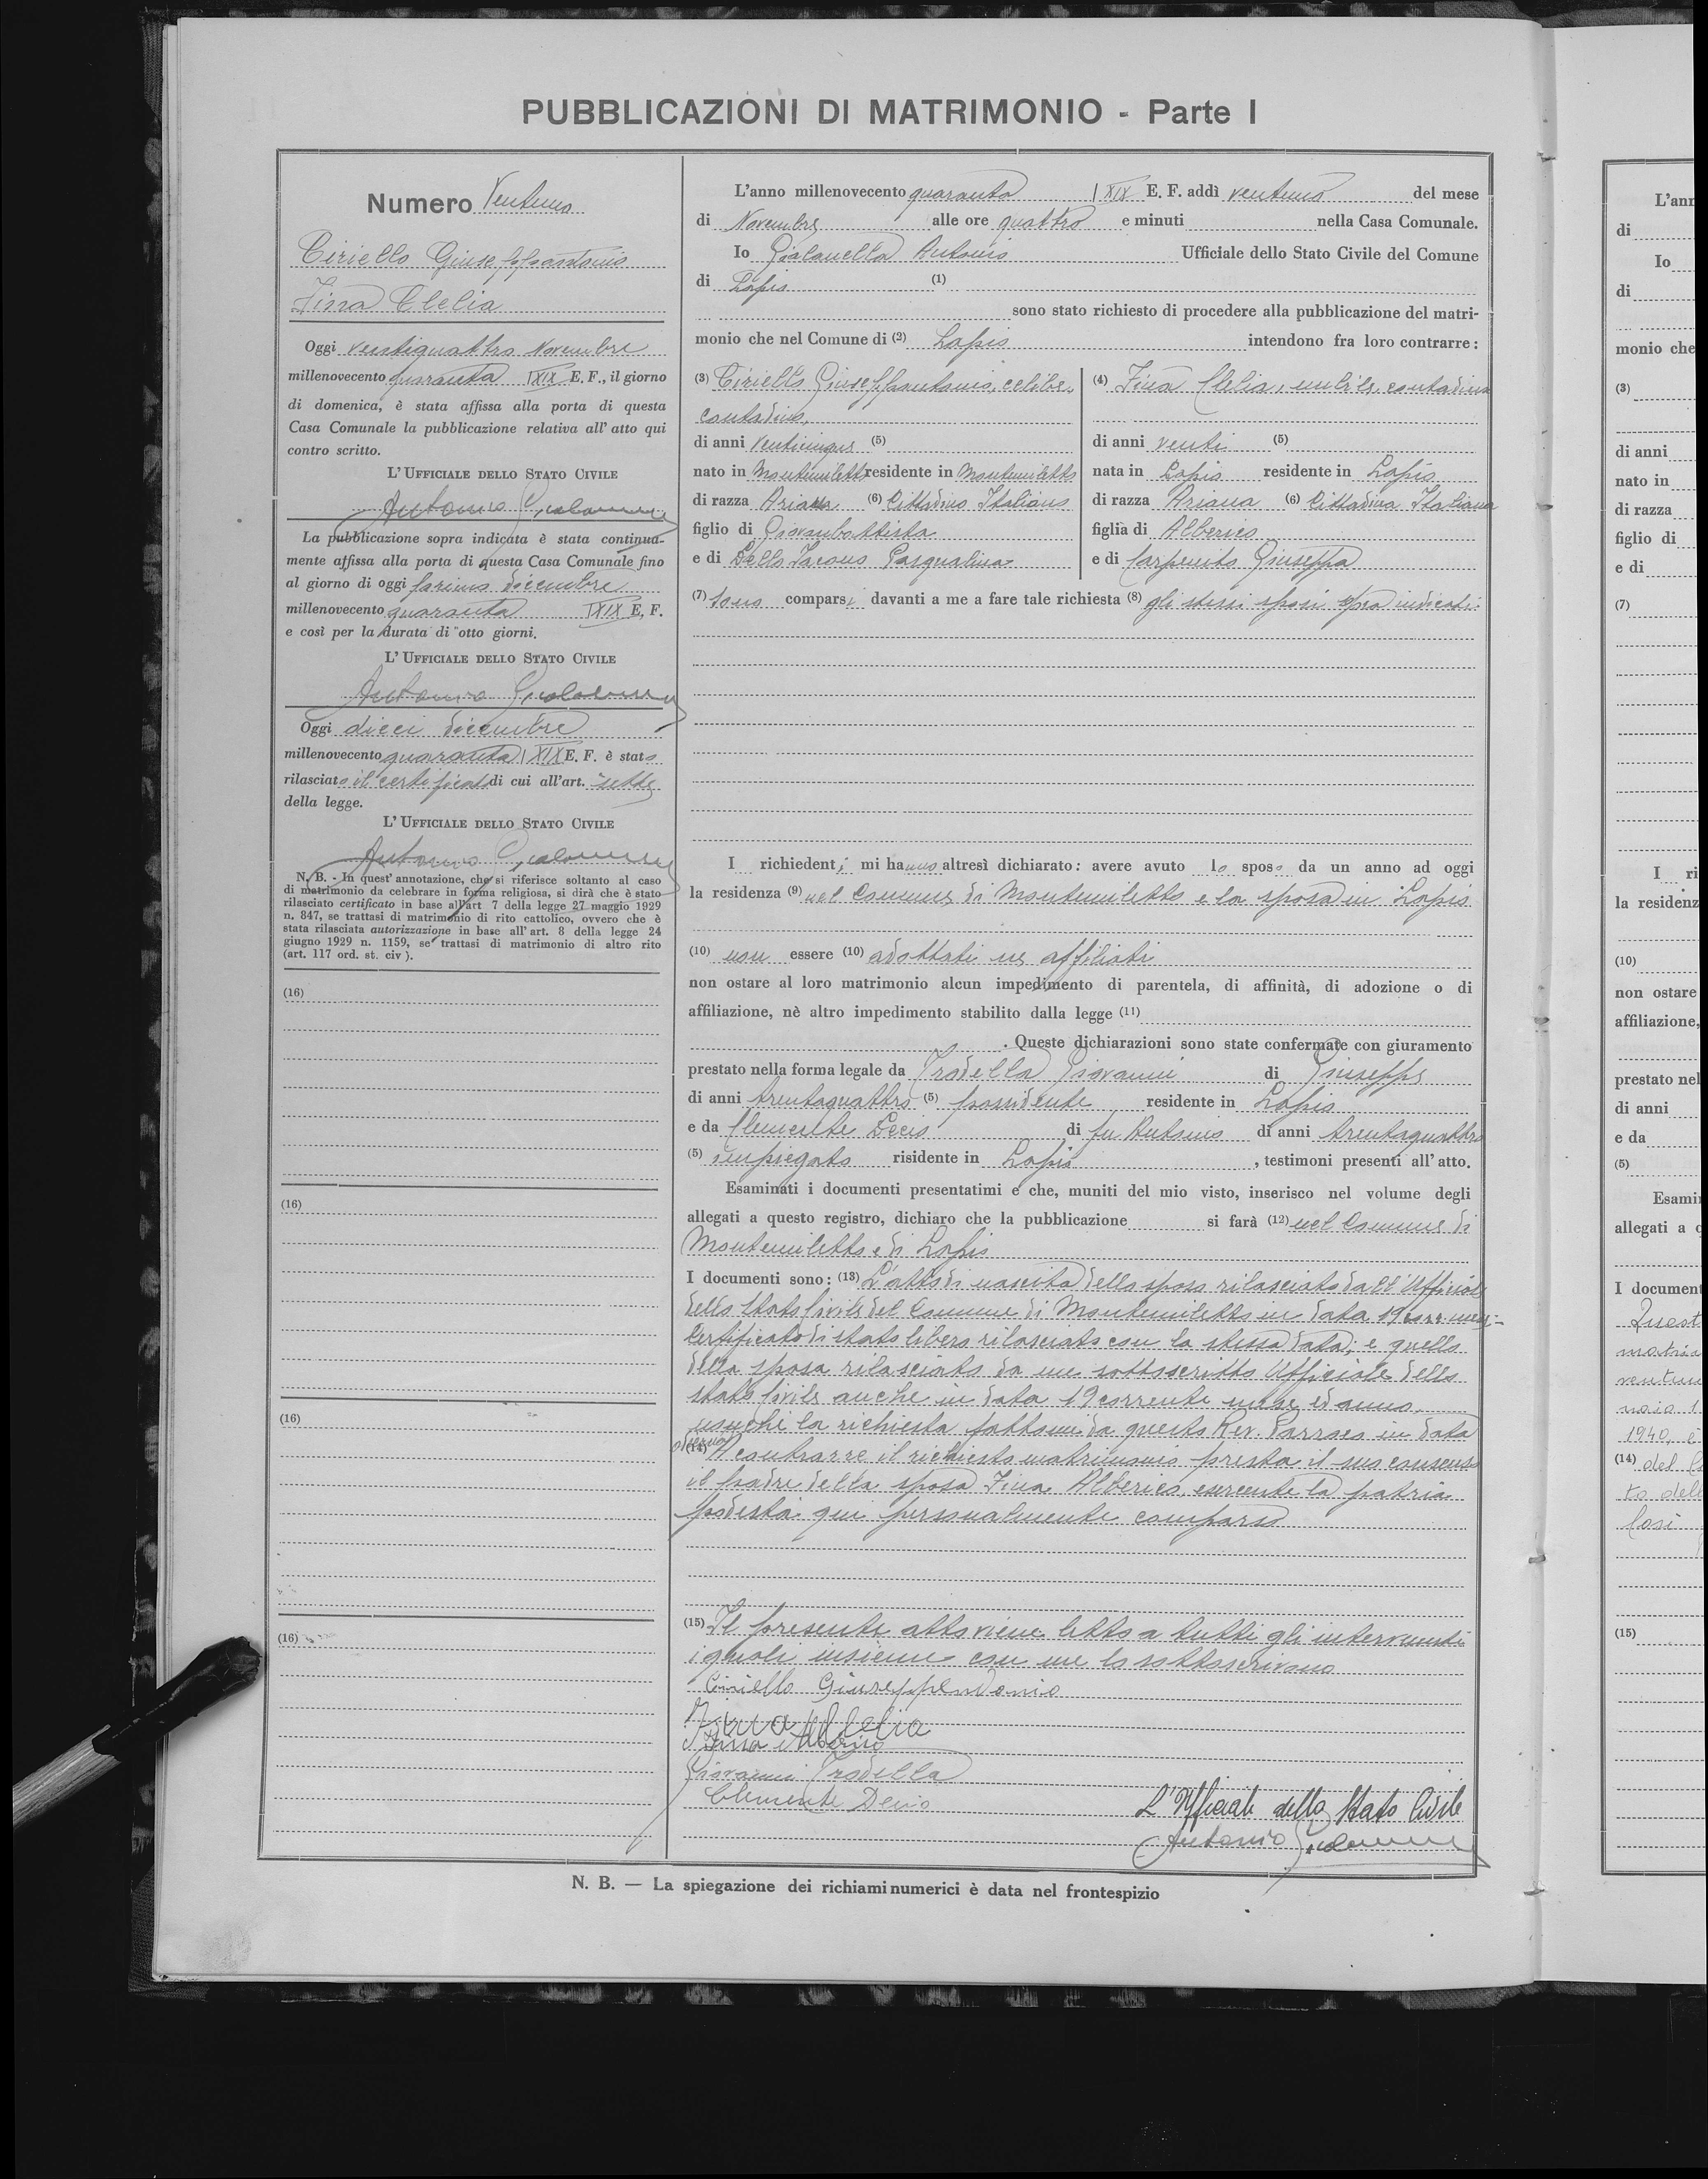 PUBBLICAZIONI DI MATRIMONIO - Parte I
Numero Ventuno
Ciriello Giuseppantonio
Zina Clelia
Oggi ventiquattro Novembre
millenovecento quaranta XIX E. F., il giorno
di domenica, è stata affissa alla porta di questa
Casa Comunale la pubblicazione relativa all' atto qui
contro scritto.
L' UFFICIALE DELLO STATO CIVILE
Antonio
La pubblicazione sopra indicata è stata continua-
mente affissa alla porta di questa Casa Comunale fino
al giorno di oggi primo dicembre
millenovecento quaranta XIX E. F.
e così per la durata di otto giorni.
L' UFFICIALE DELLO STATO CIVILE
Antonio
Oggi dieci dicembre
millenovecento quaranta XIX E. F. è stato
rilasciato il certificato di cui all'art. sette
della legge.
L' UFFICIALE DELLO STATO CIVILE
Antonio
N. B. - In quest' annotazione, che si riferisce soltanto al caso
di matrimonio da celebrare in forma religiosa, si dirà che è stato
rilasciato certificato in base all'art 7 della legge 27 maggio 1929
n. 847, se trattasi di matrimonio di rito cattolico, ovvero che è
stata rilasciata autorizzazione in base all' art. 8 della legge 24
giugno 1929 n. 1159, se trattasi di matrimonio di altro rito
(art. 117 ord. st. civ ).
(16)
(16)
(16)
(16)
L'anno millenovecento quaranta XIX E. F. addì ventuno del mese
di Novembre alle ore quattro e minuti nella Casa Comunale.
Io Gialanella Antonio Ufficiale dello Stato Civile del Comune
di Lapio (1)
sono stato richiesto di procedere alla pubblicazione del matri-
monio che nel Comune di (2) Lapio intendono fra loro contrarre :
(3) Ciriello Giuseppantonio, celibe,
contadino,
di anni Venticinque (5)
nato in Montemiletto residente in Montemiletto
di razza Ariana (6) Cittadino Italiano
figlio di Giovanbattista
e di Dello Iacono Pasqualina
(4) Zina Clelia, nubile, contadina
di anni venti (5)
nata in Lapio residente in Lapio
di razza Ariana (6) Cittadina Italiana
figlia di Alberico
e di Carpenito Giuseppa
(7) Sono comparsi davanti a me a fare tale richiesta (8) gli stessi sposi sopra indicati.
I richiedenti mi hanno altresì dichiarato : avere avuto lo sposo da un anno ad oggi
la residenza (9) nel Comune di Montemiletto e la sposa in Lapio
(10) non essere (10) adottati ne affiliati
non ostare al loro matrimonio alcun impedimento di parentela, di affinità, di adozione o di
affiliazione, nè altro impedimento stabilito dalla legge (11)
. Queste dichiarazioni sono state confermate con giuramento
prestato nella forma legale da Trodella Giovanni di Giuseppe
di anni trentaquattro (5) possidente residente in Lapio
e da Clemente Decio di fu Antonio di anni trentaquattro
(5) impiegato risidente in Lapio , testimoni presenti all' atto.
Esaminati i documenti presentatimi e che, muniti del mio visto, inserisco nel volume degli
allegati a questo registro, dichiaro che la pubblicazione si farà (12) nel Comune di
Montemiletto e di Lapio
I documenti sono : (13) L'atto di nascita dello sposo rilasciato dall'Ufficiale
dello Stato Civile del Comune di Montemiletto in data 19
Certificato di stato libero rilasciato con la stessa data; e quello
della sposa rilasciato da me sottoscritto Ufficiale dello
stato Civile anche in data 19 corrente mese ed anno.
nonchè la richiesta fattami da questo Rev. Parroco in data
odierna
(14) A contrarre il richiesto matrimonio presta il suo consenso
il padre della sposa Zina Alberico esercente la patria
podestà qui personalmente comparso
(15) Il presente atto viene letto a tutti gli intervenuti
i quali insieme con me lo sottoscrivono
Ciriello Giuseppendonio
Zina Clelia
Zina Alberico
Giovanni Trodella
Clemente Decio
L'Ufficiale dello Stato Civile
Antonio
N. B. — La spiegazione dei richiami numerici è data nel frontespizio
L'ann
di
Io
di
monio che
(3)
di anni
nato in
di razza
figlio di
e di
(7)
I ri
la residenz
(10)
non ostare
affiliazione,
prestato nel
di anni
e da
(5)
Esami
allegati a q
I document
Quest
matri
ventu
naio 1
1940, è
(14) del C
to dell
Così
(15)